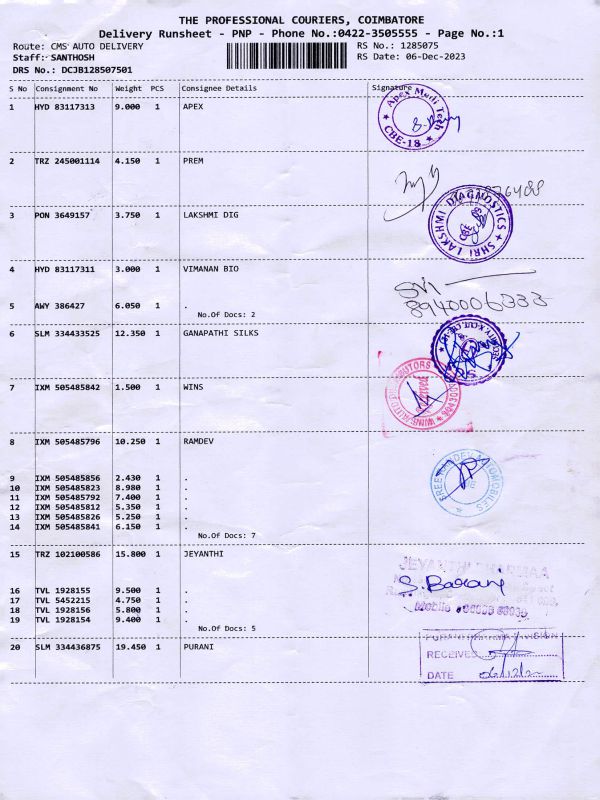 THE PROFESSIONAL COURIERS, COIMBATORE
Delivery Runsheet - PNP - Phone No.:0422-3505555 - Page No.:1
Route: CMS AUTO DELIVERY RS No.: 1285075
Staff: SANTHOSH RS Date: 06-Dec-2023
DRS No.: DCJB128507501
S No Consignment No Weight PCS Consignee Details Signature
1 HYD 83117313 9.000 1 APEX
Apex Medi Tech
CBE-18
2 TRZ 245001114 4.150 1 PREM
3 PON 3649157 3.750 1 LAKSHMI DIG
SHRI LAKSHMI DIAGNOSTICS
4 HYD 83117311 3.000 1 VIMANAN BIO
8940006333
5 AWY 386427 6.050 1 .
No.Of Docs: 2
6 SLM 334433525 12.350 1 GANAPATHI SILKS
7 IXM 505485842 1.500 1 WINS
8 IXM 505485796 10.250 1 RAMDEV
SHREE RAMDEV AUTOMOBILES
9 IXM 505485856 2.430 1 .
10 IXM 505485823 8.980 1 .
11 IXM 505485792 7.400 1 .
12 IXM 505485812 5.350 1 .
13 IXM 505485826 5.250 1 .
14 IXM 505485841 6.150 1 .
No.Of Docs: 7
15 TRZ 102100586 15.800 1 JEYANTHI
JEYANTHI PHARMAA
S. Barani
Mobile
16 TVL 1928155 9.500 1 .
17 TVL 5452215 4.750 1 .
18 TVL 1928156 5.800 1 .
19 TVL 1928154 9.400 1 .
No.Of Docs: 5
20 SLM 334436875 19.450 1 PURANI
RECEIVED
DATE 06/12/2